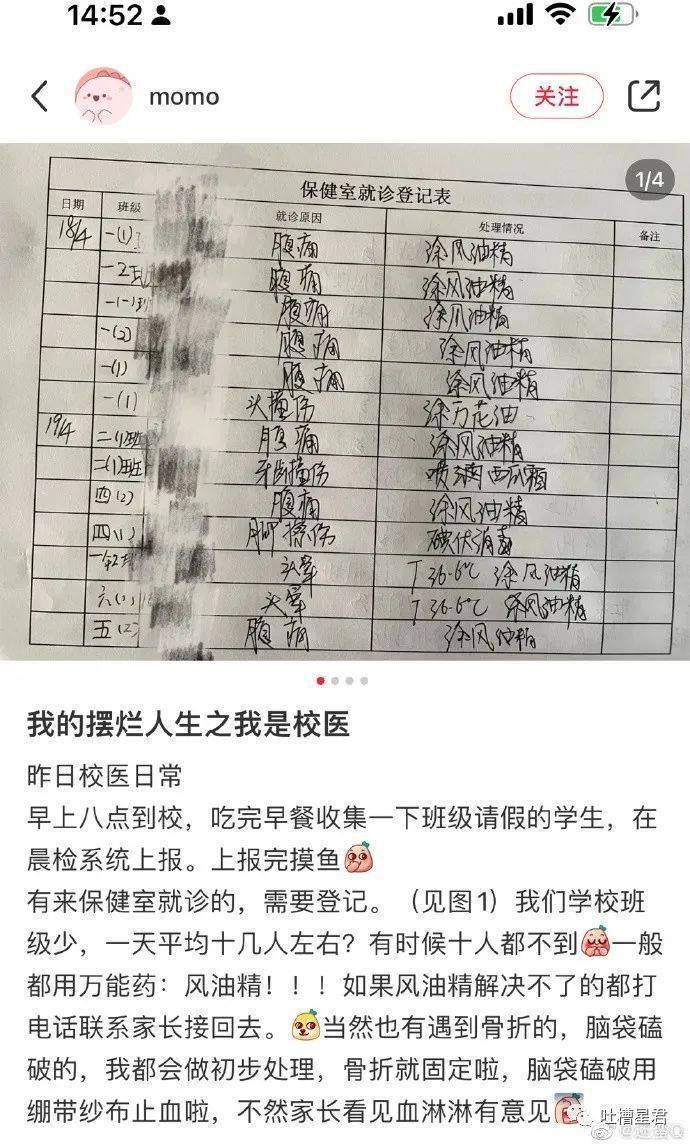 14:52
momo
关注
1/4
保健室就诊登记表
日期 班级 就诊原因 处理情况 备注
18/4 一(1) 腹痛 涂风油精
一2班 腹痛 涂风油精
腹痛 涂风油精
一(2) 腹痛 涂风油精
一(1) 腹痛 涂风油精
一(1) 头撞伤 涂万花油
19/4 二(1)班 腹痛 涂风油精
二(1)班 牙齿撞伤 喷 西瓜霜
四(2) 腹痛 涂风油精
四(1) 脚擦伤 碘伏消毒
头晕 T 36.6℃ 涂风油精
六(1) 头晕 T 36.6℃ 涂风油精
五(2) 腹痛 涂风油精
我的摆烂人生之我是校医
昨日校医日常
早上八点到校，吃完早餐收集一下班级请假的学生，在
晨检系统上报。上报完摸鱼
有来保健室就诊的，需要登记。（见图1）我们学校班
级少，一天平均十几人左右？有时候十人都不到一般
都用万能药：风油精！！！如果风油精解决不了的都打
电话联系家长接回去。当然也有遇到骨折的，脑袋磕
破的，我都会做初步处理，骨折就固定啦，脑袋磕破用
绷带纱布止血啦，不然家长看见血淋淋有意见
吐槽星君